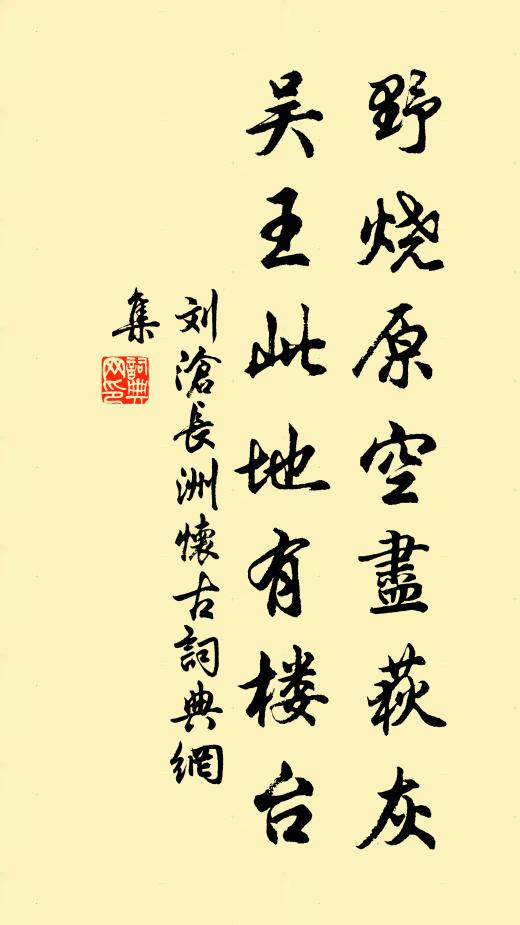 野烧原空盡荻灰
吴王此地有楼台
刘滄長洲懷古詞典網
集
詞典
网印